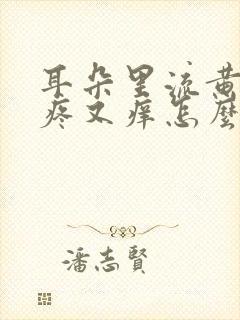 耳朵里流黄
疼又痒怎麼
潘志賢